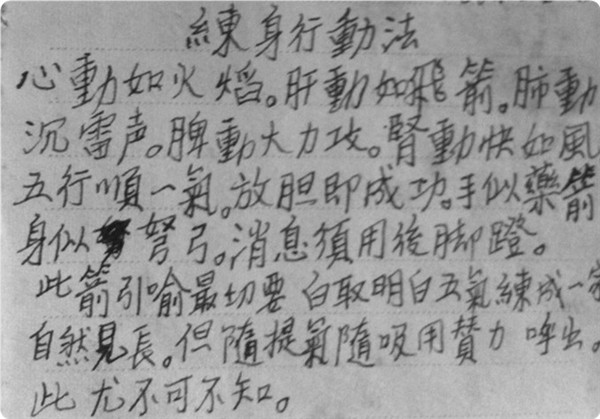 練身行動法
心動如火焰。肝動如飛箭。肺動
沉雷声。脾動大力攻。腎動快如風
五行順一氣。放胆即成功。手似藥箭
身似弩弓。消息須用後脚蹬。
此箭引喻最切要 白取明白五氣練成一家
自然見長。但隨提氣隨吸用賛力 呼出。
此尤不可不知。